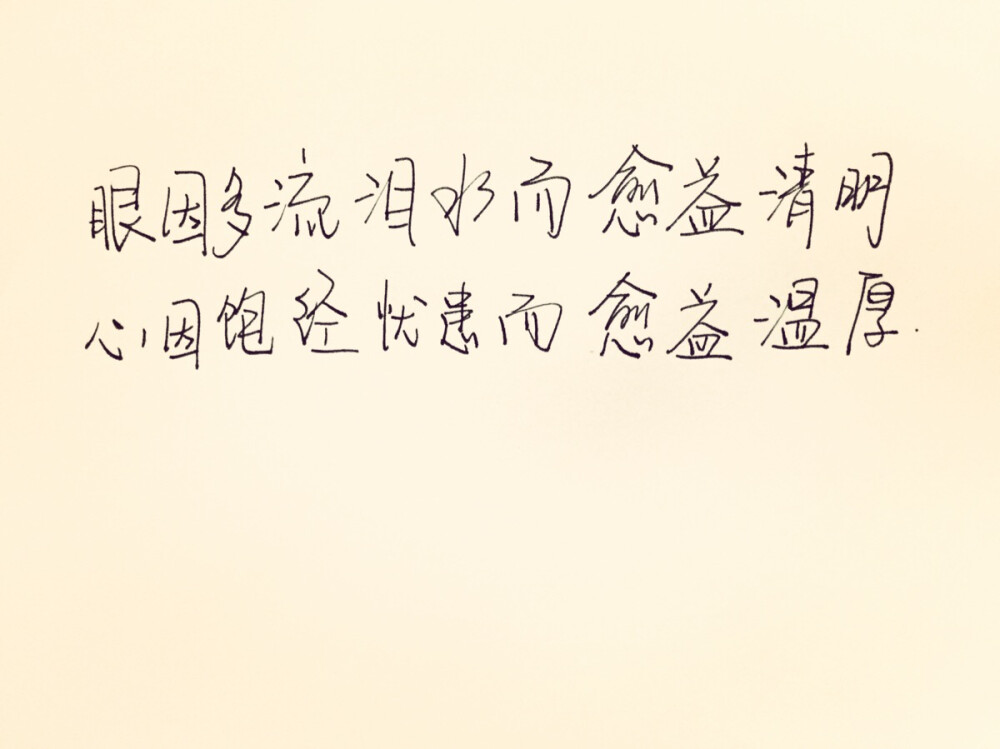 眼因多流泪水而愈益清明
心因饱经忧患而愈益温厚.